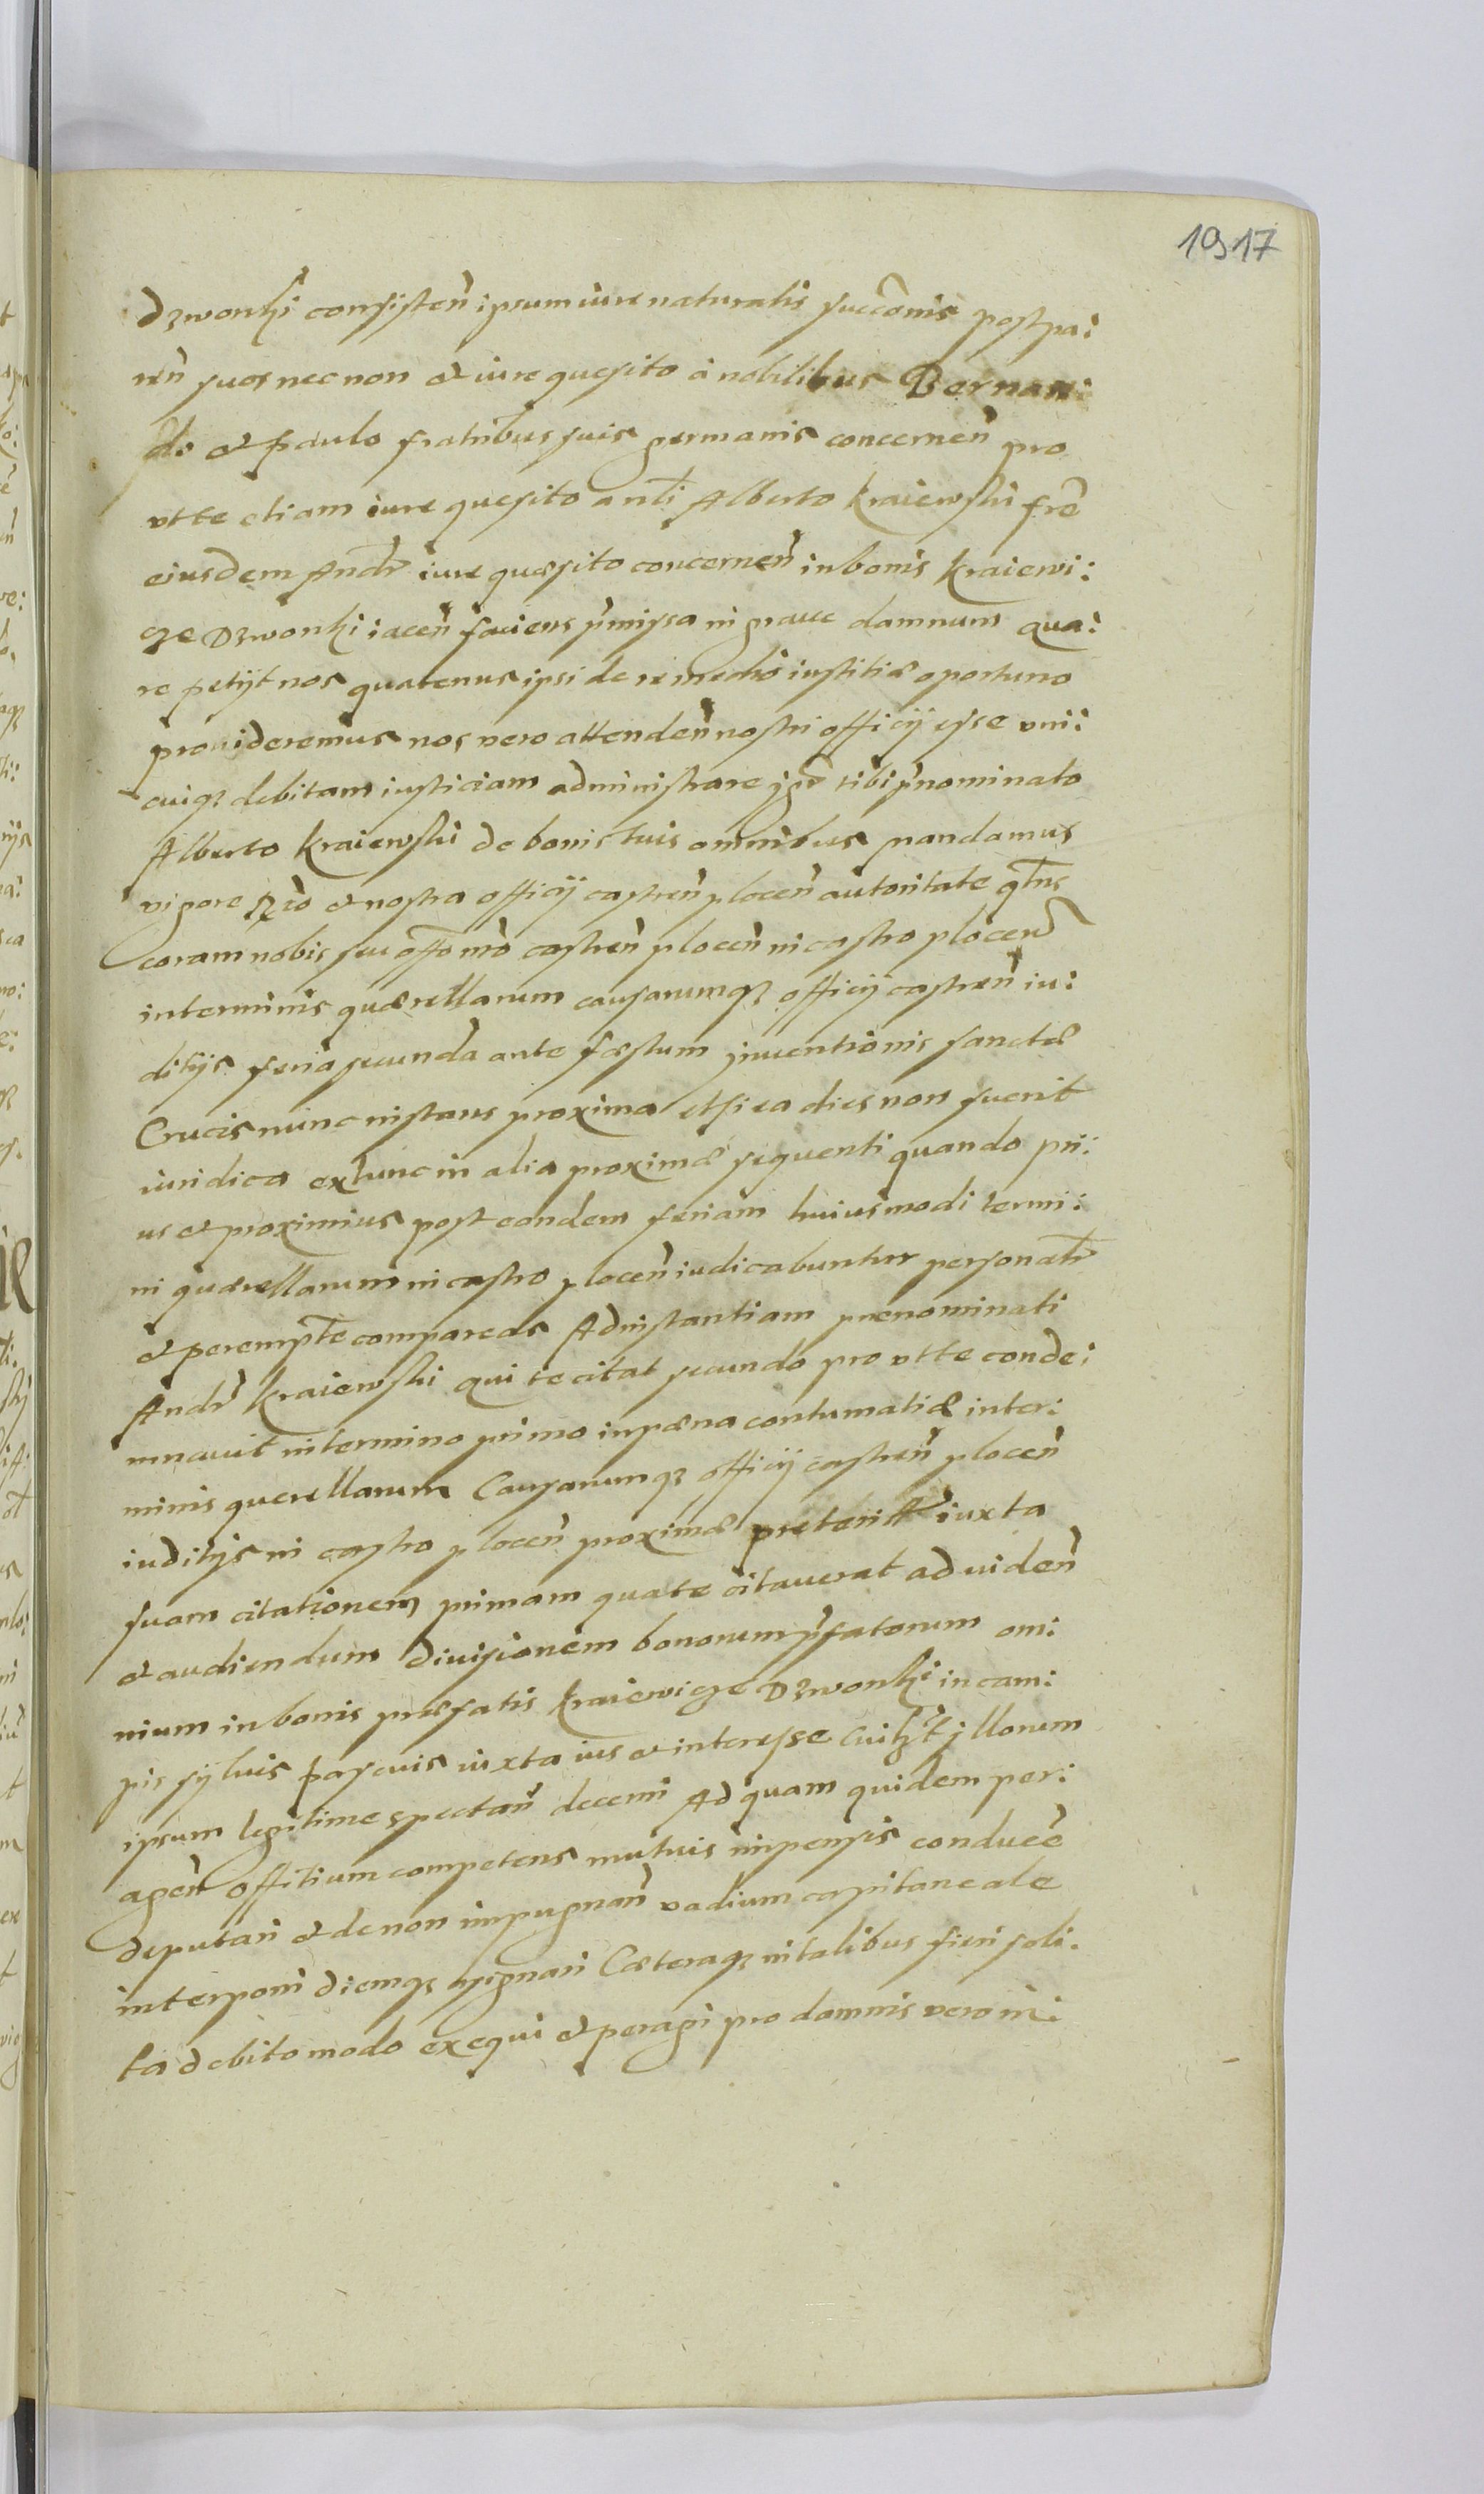 1917
Dzwonki consisten̄ ipsum iure naturalis succōnis post pa:
ren̄ suos nec non et iure quesito a nobilibus Bernar:
do et Paulo fratribus suis germanis concernen̄ pro
ut te etiam iure quesito a nl̄i Alberto Kraiewski frē
eiusdem Andr̄ iure quæsito concernen̄ in bonis Kraiewi:
cze Dzwonki iacen̄ faciens p̄missa in graue damnum qua:
re petijt nos quatenus ipsi de remedio iustitiæ oportuno
prouideremus nos vero attenden̄ nostri officij esse vni:
cuiqȝ debitam iusticiam administrare jḡr tibi p̄nominato
Alberto Kraiewski de bonis tuis omnibus mandamus
vigore R̄io et nostra officij castren̄ plocen̄ autoritate q̄tns
coram nobis seu offo nr̄o castren̄ plocen̄ in castro plocen̄
in terminis quærellarum causarumqȝ officij castren̄ iu:
ditijs feria secunda ante fæstum jnuentionis sanctæ
Crucis nunc instans proxima etsi ea dies non fuerit
iuridica ex tunc in alia proximæ sequenti quando pri:
us et proximius post eandem feriam huiusmodi termi:
ni quærellarum in castro plocen̄ iudicabuntur personalr̄
et perempt̄e compareas Ad instantiam prenominati
Andr̄ Kraiewski qui te citat secundo pro ut te conde:
mnauit in termino primo in pæna contumatiæ in ter:
minis querellarum Causarumqȝ officij castren̄ plocen̄
iuditijs in castro plocen̄ proximæ preterit̄ iuxta
suam citationem primam qua te citauerat ad viden̄
et audiendum diuisionem bonorum p̄fatorum om:
nium in bonis præfatis Kraiewicze Dzwonki in cam:
pis syluis pascuis iuxta ius et interesse cuilȝt jllorum
ipsum legitime spectan̄ decerni Ad quam quidem per:
agen̄ offitium competens mutuis impensis conducē
deputari et de non impugnan̄ vadium capitaneale
interponi diemqȝ assignari Cæteraqȝ in talibus fieri soli:
ta debito modo exequi et peragi pro damnis vero in: